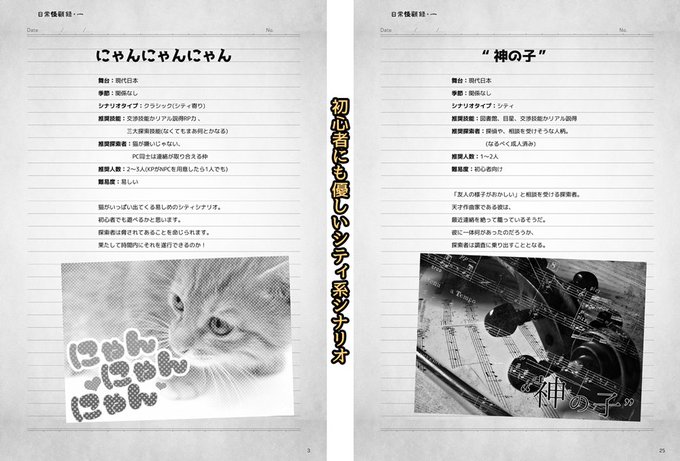 日常怪顧録・一
Date / / / No.
にゃんにゃんにゃん
舞台：現代日本
季節：関係なし
シナリオタイプ：クラシック(シティ寄り)
推奨技能：交渉技能かリアル説得RP力、
三大探索技能(なくてもまあ何とかなる)
推奨探索者：猫が嫌いじゃない、
PC同士は連絡が取り合える仲
推奨人数：2~3人(KPがNPCを用意したら1人でも)
難易度：易しい
猫がいっぱい出てくる易しめのシティシナリオ。
初心者でも遊べるかと思います。
探索者は脅されてあることを命じられます。
果たして時間内にそれを遂行できるのか！
にゃん
にゃん
にゃん
3
初心者にも優しいシティ系シナリオ
日常怪顧録・一
Date / / / No.
“神の子”
舞台：現代日本
季節：関係なし
シナリオタイプ：シティ
推奨技能：図書館、目星、交渉技能かリアル説得
推奨探索者：探偵や、相談を受けそうな人柄。
(なるべく成人済み)
推奨人数：1~2人
難易度：初心者向け
「友人の様子がおかしい」と相談を受ける探索者。
天才作曲家である彼は、
最近連絡を絶って籠っているそうだ。
彼に一体何があったのだろうか、
探索者は調査に乗り出すこととなる。
a Tempo
“神の子”
25